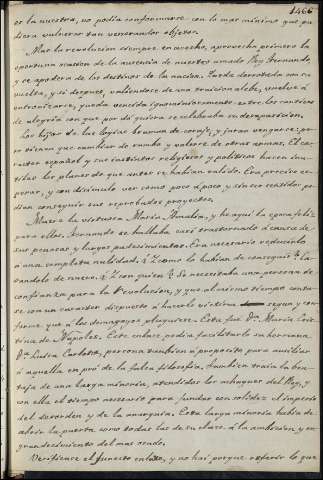 1466
es la nuestra, no podía conformarse con lo mas mínimo que pu-
diera vulnerar tan venerandos objetos.
Mas la revolucion siempre en acecho, aprovecha primero la
oportuna ocasion de la ausencia de nuestro amado Rey Fernando,
y se apodera de los destinos de la nacion. Puede derrotada con su
vuelta, y si despues, valiendose de una traicion alebe, vuelve á
entronizarse, queda vencida ignominiosamente entre los canticos
de alegria con que por dó quiera se celebraba su desaparicion.
Los hijos de las logias braman de corage, y juran vengarse: pe-
ro vieron que cambiar de rumbo y valerse de otras armas. El ca-
racter español y sus instintos religiosos y politicos hacen inu-
tiles los planes de que antes se habian valido. Era preciso es-
perar, y con disimulo ver como poco á poco y sin ser sentidos po-
dian conseguir sus reprobados proyectos.
Muere la virtuosa María Amalia, y he aqui la epoca feliz
para ellos. Fernando se hallaba casi trastornado á causa de
sus penas y largos padecimientos. Era necesario reducirlo
á una completa nulidad. ¿Y como lo habian de conseguir? Ca-
sandolo de nuevo. ¿Y con quien? Se necesitaba una persona de
confianza para la Revolucion, y que al mismo tiempo contu-
se con un caracter dispuesto á hacerle victima segun y con-
forme que á los demagogos pluguiese. Esta fue Dª. María Cris-
tina de Napoles. Este enlace podia facilitarlo su hermana
Dª. Luisa Carlota, persona tambien á proposito para auxiliar
á aquella en pró de la falsa filosofia. Tambien traía la ven-
taja de una larga minoria, atendidos los achaques del Rey, y
con ella el tiempo necesario para fundar con solidez el imperio
del desorden y de la anarquía. Esta larga minoria habia de
abrir la puerta como todas las de su clase á la ambicion y en-
grandecimiento del mas osado.
Verificase el funesto enlace, y no hai porque referir lo que